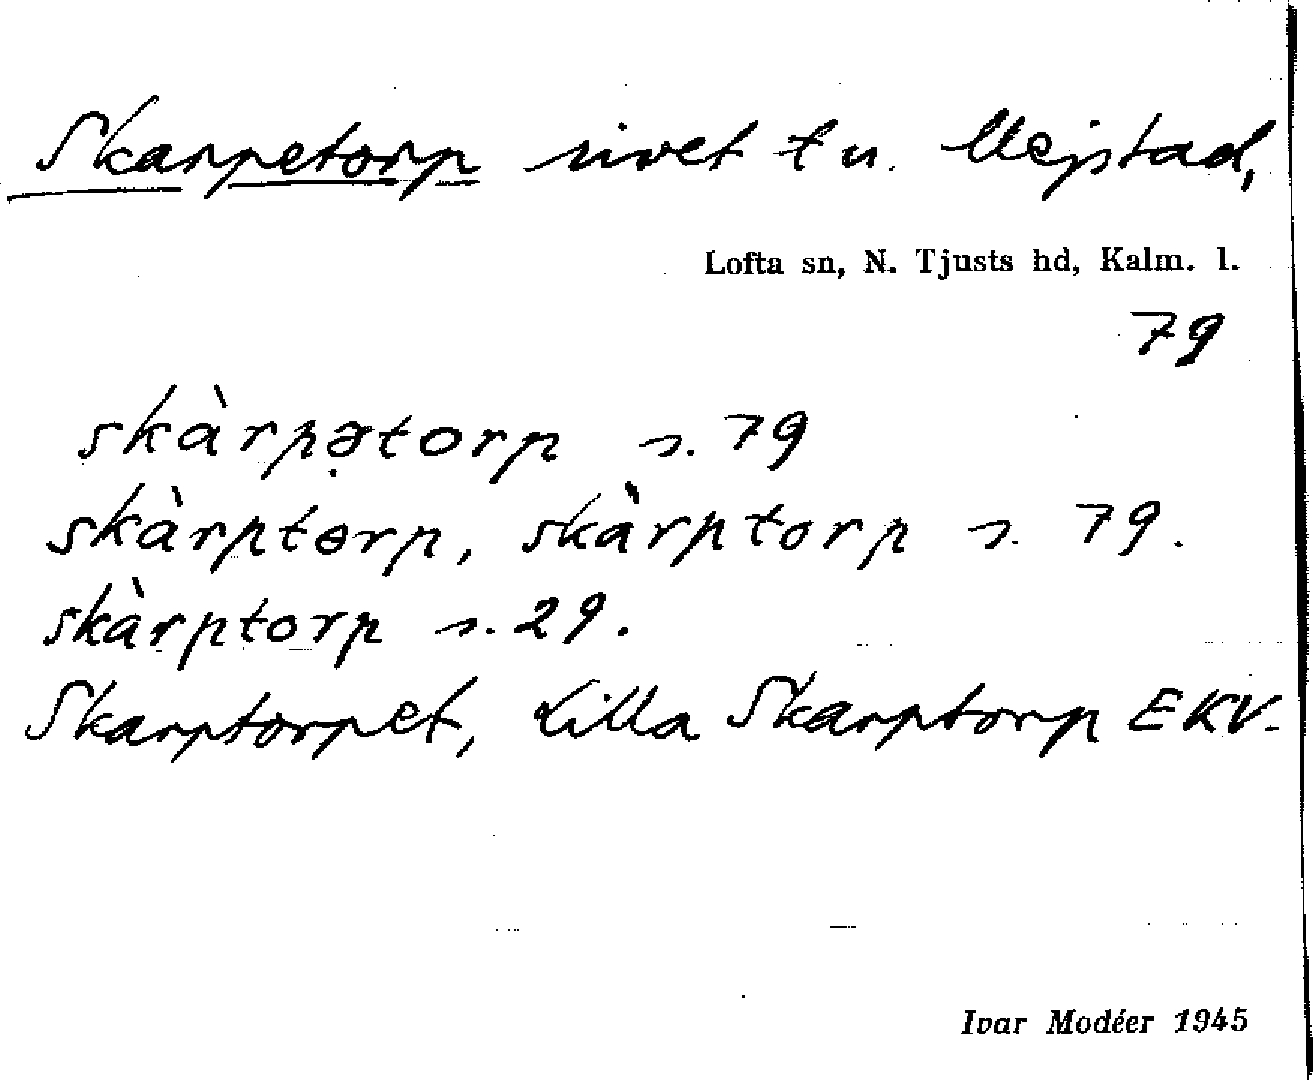 Skarpetorp rivet t u. Vejstad,
Lofta sn, N. Tjusts hd, Kalm. l.
79
skàrpətorp s. 79
skàrptorp, skàrptorp s. 79.
skàrptorp s. 29.
Skarptorpet, Lilla Skarptorp EKV.
Ivar Modéer 1945